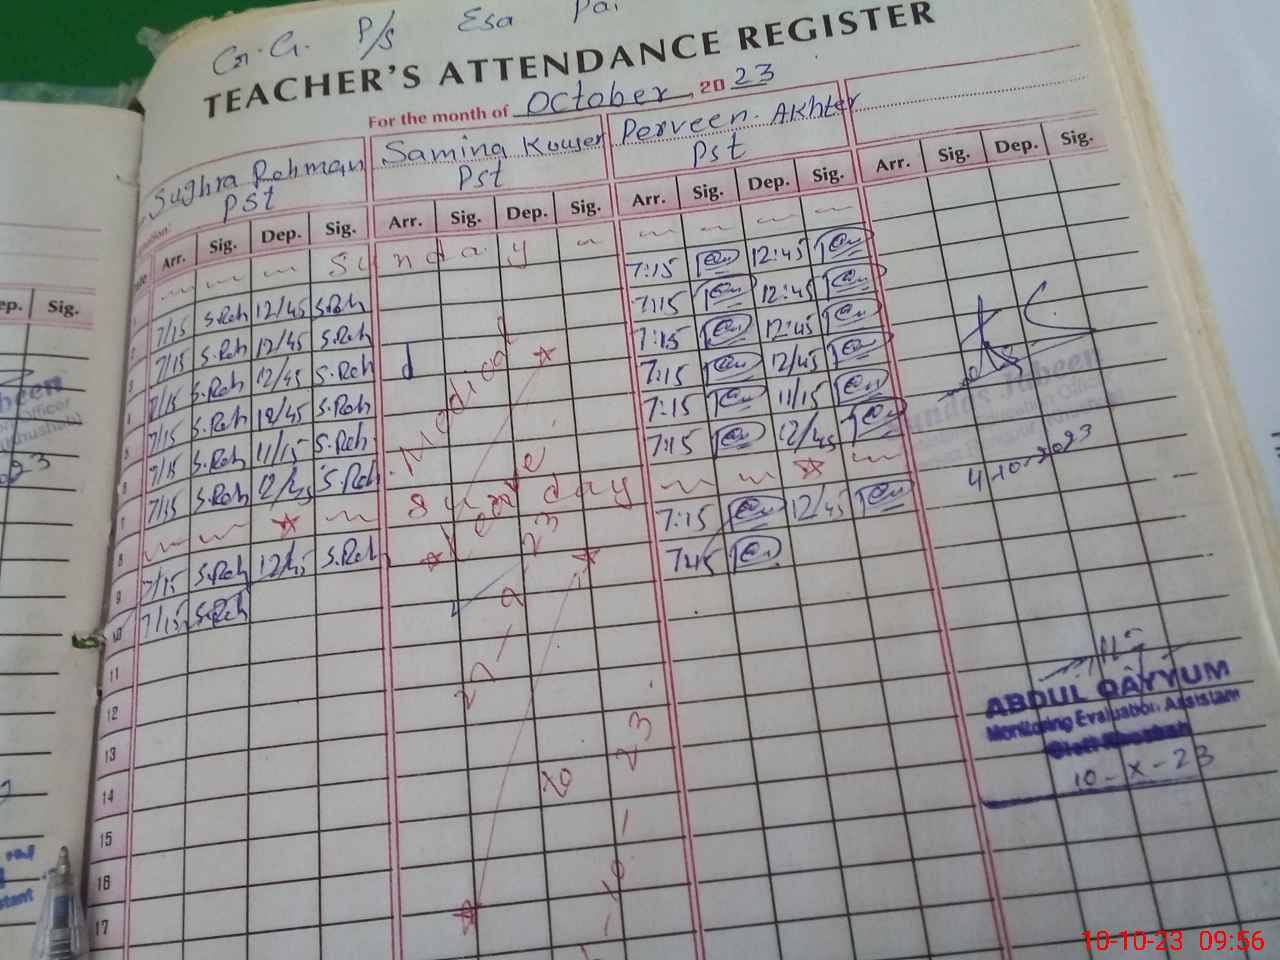 P/s Esa
TEACHER'S ATTENDANCE REGISTER
For the month of October, 2023
Sughra Rehman Samina Kouser Perveen. Akhter
PST Pst Pst
Arr. Sig. Dep. Sig. Arr. Sig. Dep. Sig. Arr. Sig. Dep. Sig. Arr. Sig. Dep. Sig.
ep. Sig.
Sunday
1
2 7/15 S.Reh 12/45 S.Reh 7:15 12:45
3 7/15 S.Reh 12/45 S.Reh 7:15 12:45
4 7/15 S.Reh 12/45 S.Reh 7:15 12:45
5 7/15 S.Reh 12/45 S.Reh 7:15 12/45
6 7/15 S.Reh 11/15 S.Reh 7:15 11/15
7 7/15 S.Reh 12/45 S.Reh 7:15 12/45
8 Sunday
9 7/15 S.Reh 12/45 S.Reh 7:15 12/45
10 7/15 S.Reh 7:15
11
12
13
14
15
16
17
Medical
Leave
27-9-23
20-10-23
Jabeen
4-10-2023
ABDUL QAYYUM
Monitoring Evaluation Assistant
10-X-23
10-10-23 09:56